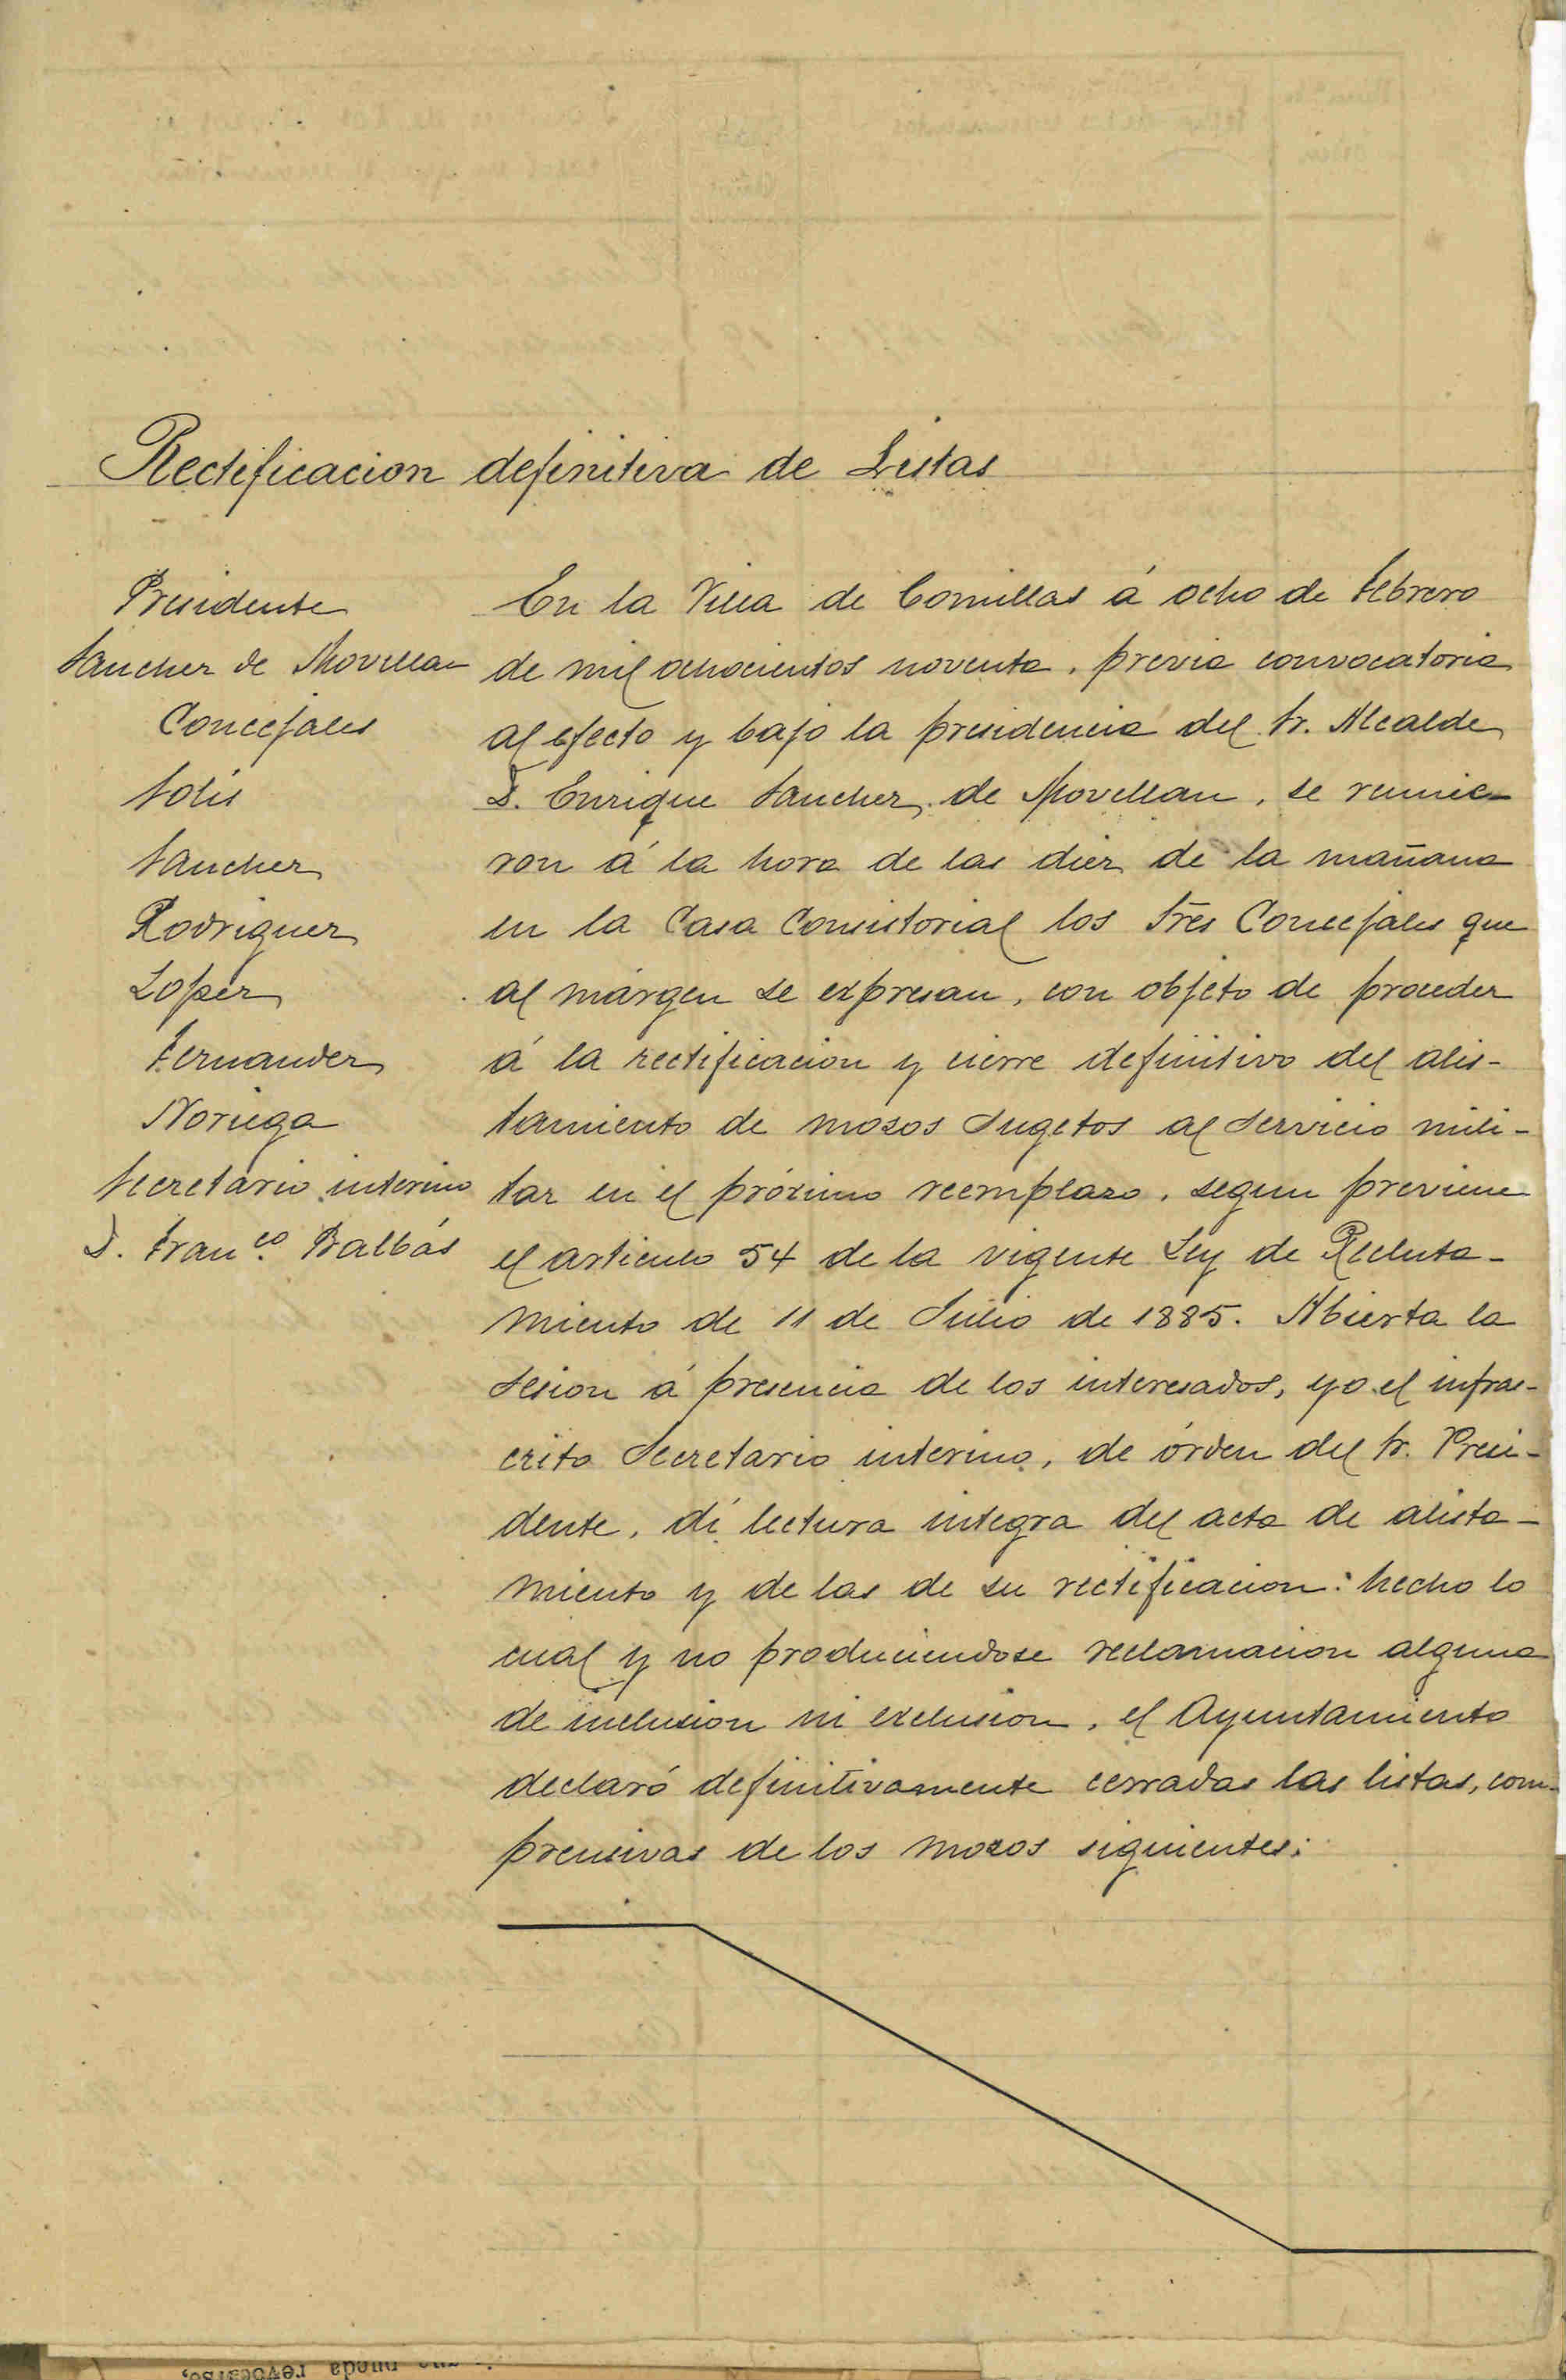 Rectificacion definitiva de Listas
Presidente
Sanchez de Movellan
Concejales
Solis
Sanchez
Rodriguez
Lopez
Fernandez
Noriega
Secretario interino
D. Fran.co Balbás
En la Villa de Comillas á ocho de Febrero
de mil ochocientos noventa, previa convocatoria
al efecto y bajo la presidencia del Sr. Alcalde
D. Enrique Sanchez de Movellan, se reunie-
ron á la hora de las diez de la mañana
en la Casa Consistorial los Sres Concejales que
al márgen se expresan, con objeto de proceder
á la rectificacion y cierre definitivo del alis-
tamiento de mozos sugetos al servicio mili-
tar en el próximo reemplazo, segun previene
el articulo 54 de la vigente Ley de Recluta-
miento de 11 de Julio de 1885. Abierta la
sesion á presencia de los interesados, yo el infras-
crito Secretario interino, de órden del Sr. Presi-
dente, dí lectura integra del acta de alista-
miento y de las de su rectificacion: hecho lo
cual y no produciendose reclamacion alguna
de inclusion ni exclusion, el Ayuntamiento
declaró definitivamente cerradas las listas, com-
prensivas de los mozos siguientes:
pueda revocarse,